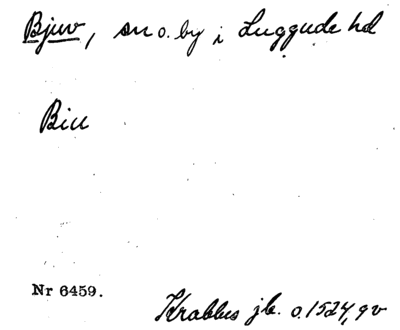 Bjuv, sn o. by i Luggude hd
Biu
Nr 6459.
Krabbes jb. o. 1524, qv